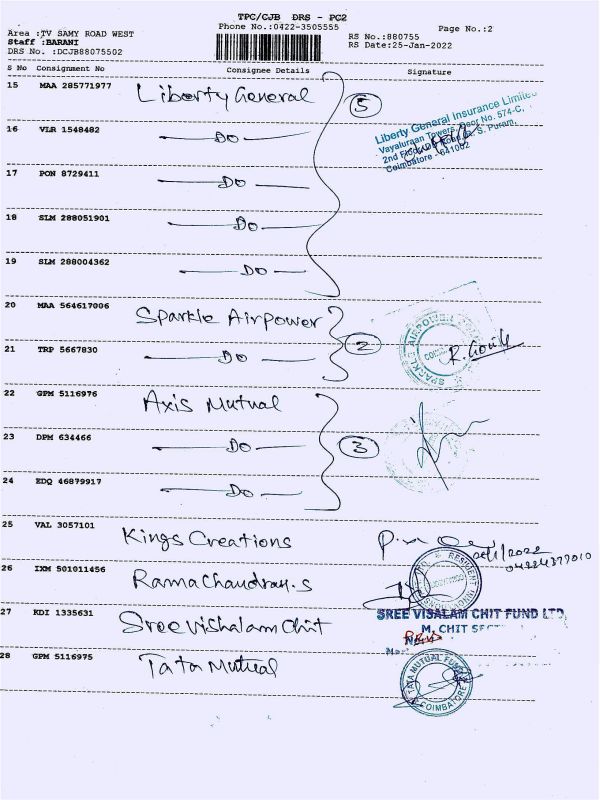 TPC/CJB DRS - PC2
Area :TV SAMY ROAD WEST
Phone No.:0422-3505555
Page No.:2
Staff :BARANI
RS No.:880755
DRS No. :DCJB88075502
RS Date:25-Jan-2022
S No Consignment No Consignee Details Signature
15 MAA 285771977 Liberty General 5
Liberty General Insurance Limited
16 VLR 1548482 DO
Coimbatore - 641002
17 PON 8729411 DO
18 SLM 288051901 DO
19 SLM 288004362 DO
20 MAA 564617006 Sparkle Airpower 2
SPARKLE AIRPOWER
21 TRP 5667830 DO
22 GPM 5116976 Axis Mutual 3
23 DPM 634466 DO
24 EDQ 46879917 DO
25 VAL 3057101 Kings Creations
04224377010
26 IXM 501011456 Ramachandran.S
27 KDI 1335631 Sree Vishalam Chit
SREE VISALAM CHIT FUND LTD.
M. CHIT
28 GPM 5116975 Tata Mutual
TATA MUTUAL FUND
COIMBATORE